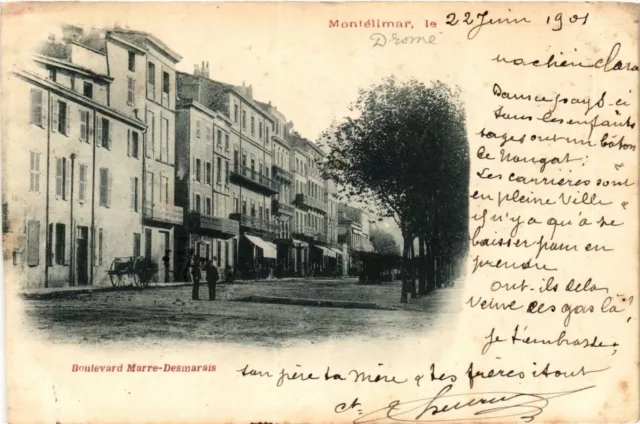 Montélimar, le 22 Juin 1901
Drome
ma chère Clara
Dans ce pays-ci
tous les enfants
sages ont un bâton
de Nougat.
Les carrières sont
en pleine Ville &
il n'y a qu'à se
baisser pour en
prendre
ont-ils de la
Veine ces gas là!
Je t'embrasse,
ton père ta Mère & tes frères itout
Boulevard Marre-Desmarais